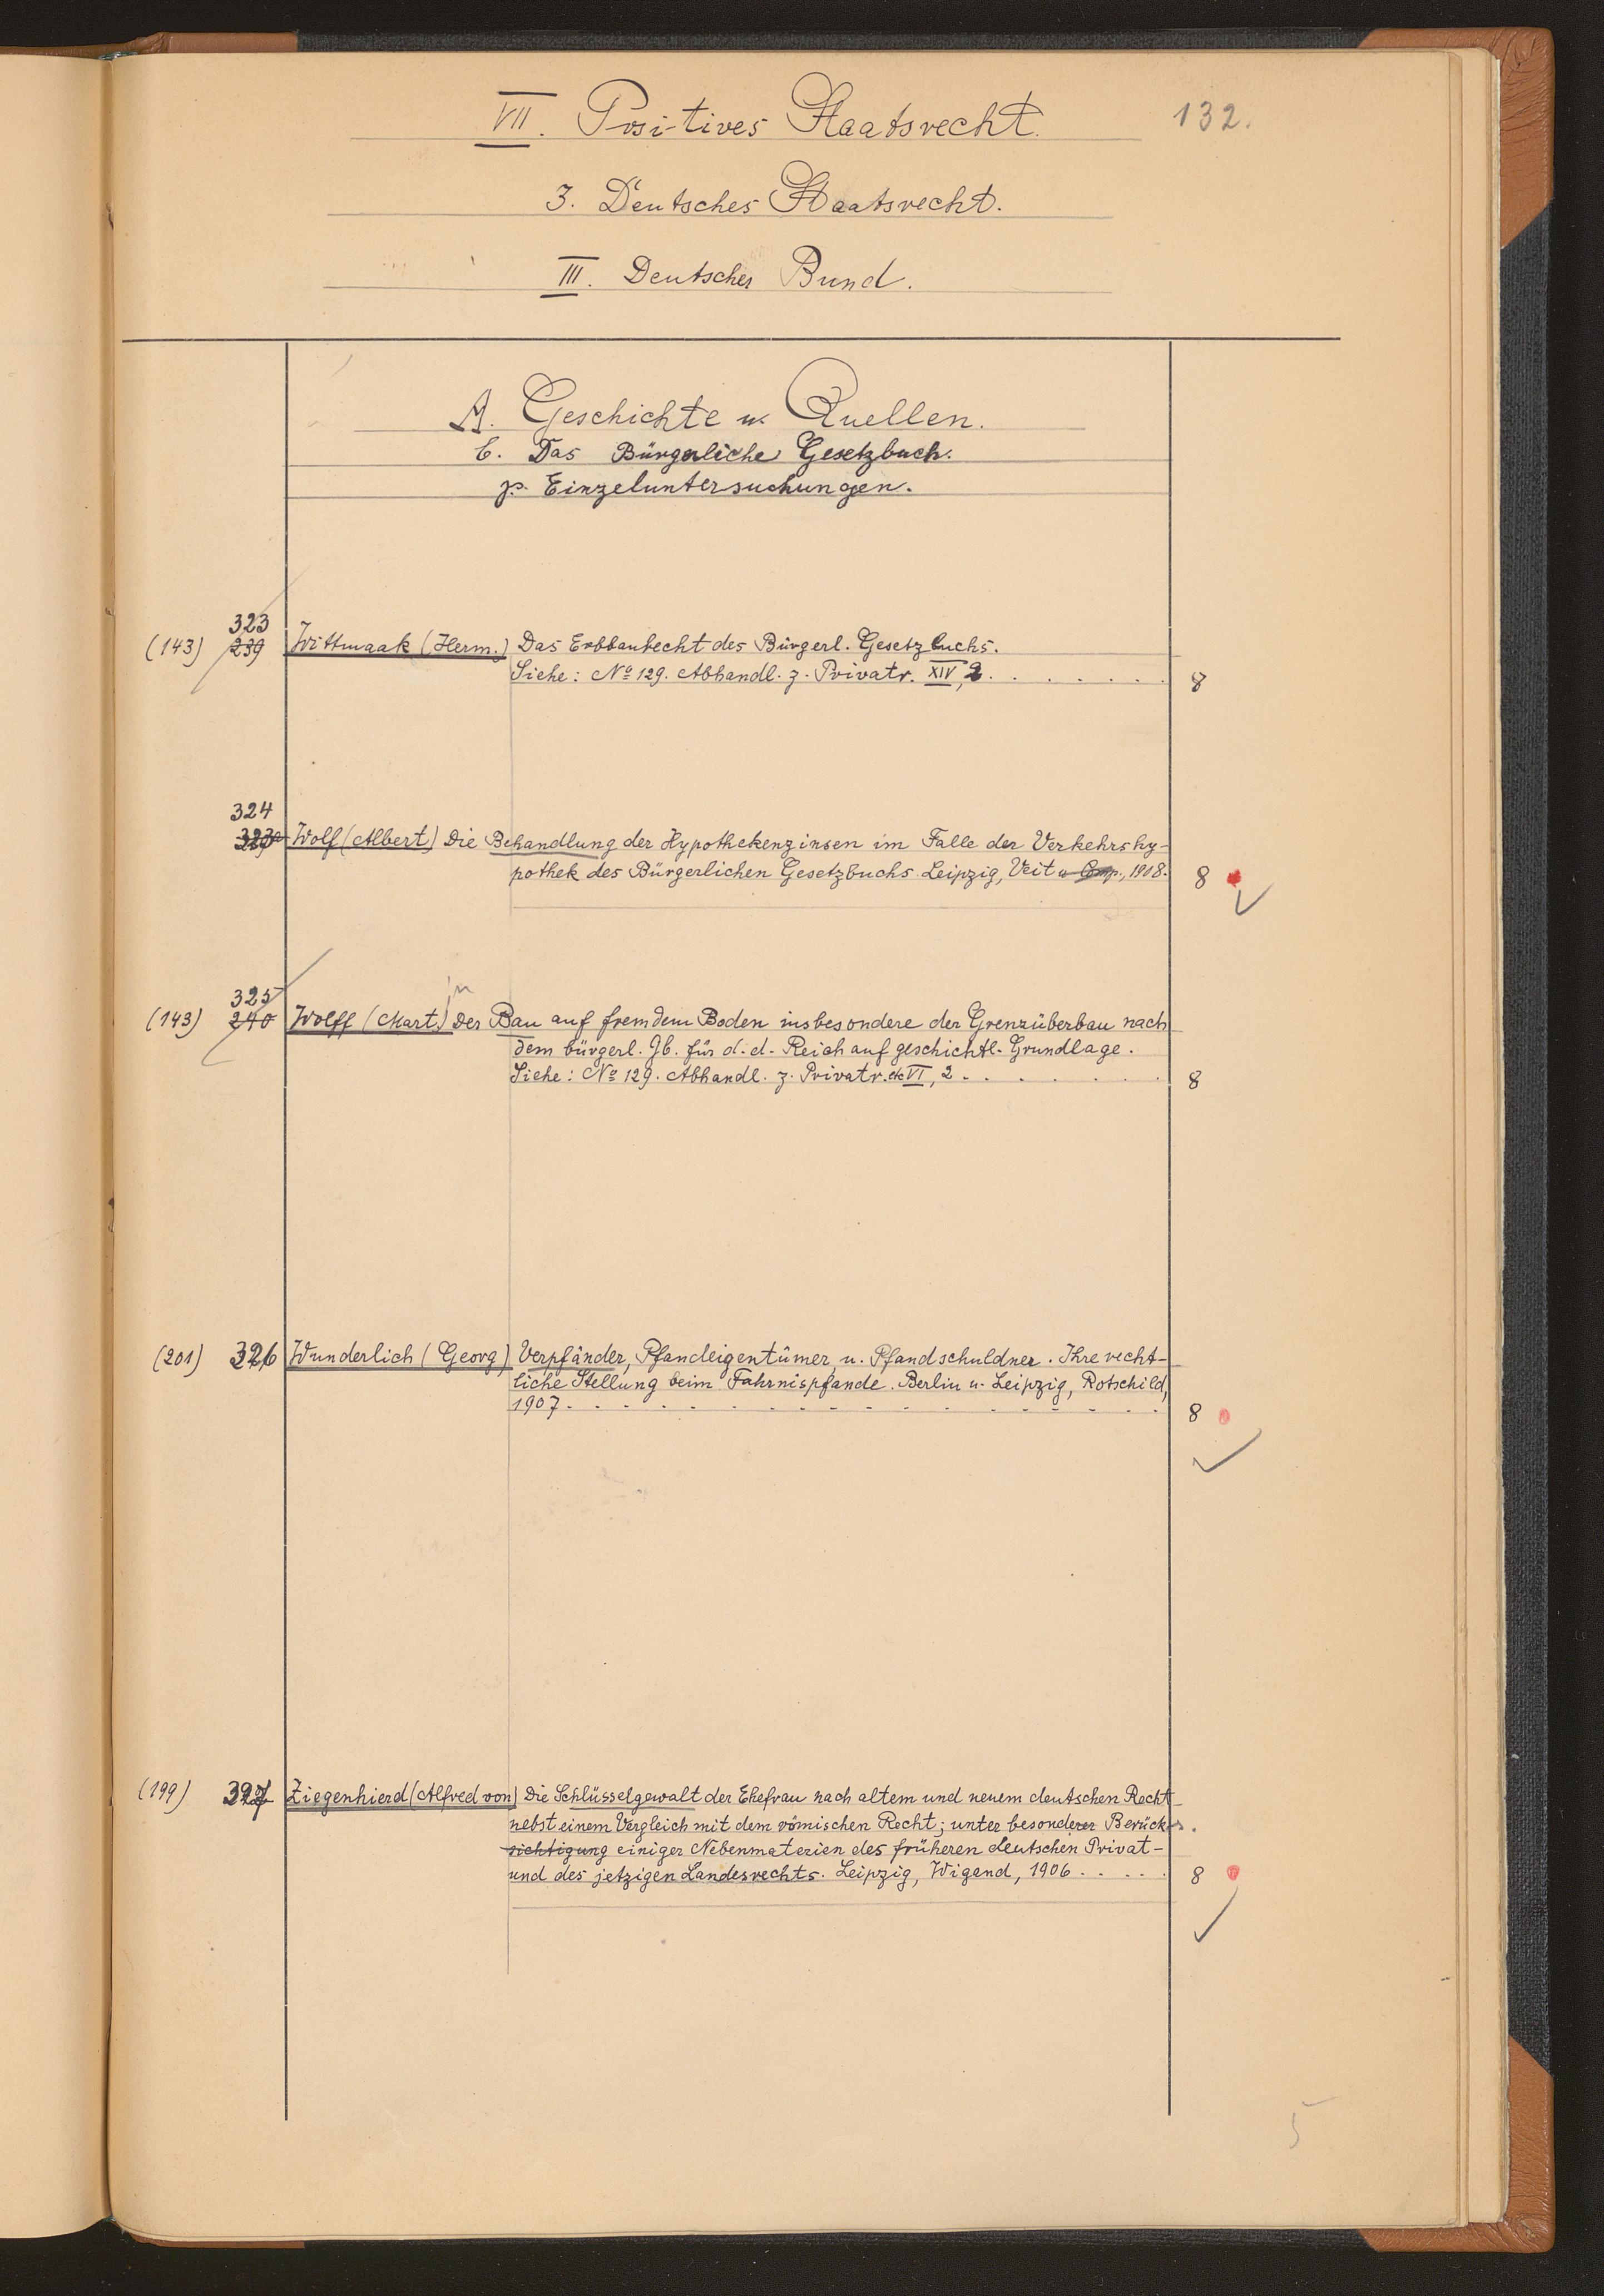 VII. Positives Staatsrecht. 132.
3. Deutsches Staatsrecht.
III. Deutscher Bund.
A. Geschichte u. Quellen.
b. Das Bürgerliche Gesetzbuch.
Einzeluntersuchungen.
323
(143) 239 Wittmaak (Herm.) Das Erbbaurecht des Bürgerl. Gesetzbuchs.
Siehe: No 129. Abhandl. z. Privatr. XIV, 2. . . . . . . 8
324
Wolf (Albert) Die Behandlung der Hypothekenzinsen im Falle der Verkehrshy-
pothek des Bürgerlichen Gesetzbuchs. Leipzig, Veit u. Comp., 1908. 8
325
in
(143) 240 Wolff (Mart.) Der Bau auf fremdem Boden insbesondere der Grenzüberbau nach
dem bürgerl. Gb. für d. d. Reich auf geschichtl. Grundlage.
Siehe: No 129. Abhandl. z. Privatr. etc VI, 2 . . . . . . . 8
(201) 326 Wunderlich (Georg) Verpfänder, Pfandeigentümer u. Pfandschuldner. Ihre recht-
liche Stellung beim Fahrnispfande. Berlin u. Leipzig, Rotschild,
1907. . . . . . . . . . . . . . . . . 8
(199) 327 Ziegenhierd (Alfred von) Die Schlüsselgewalt der Ehefrau nach altem und neuem deutschen Recht
nebst einem Vergleich mit dem römischen Recht; unter besonderer Berück-
sichtigung einiger Nebenmaterien des früheren deutschen Privat-
und des jetzigen Landesrechts. Leipzig, Wigand, 1906 . . . . . 8
5